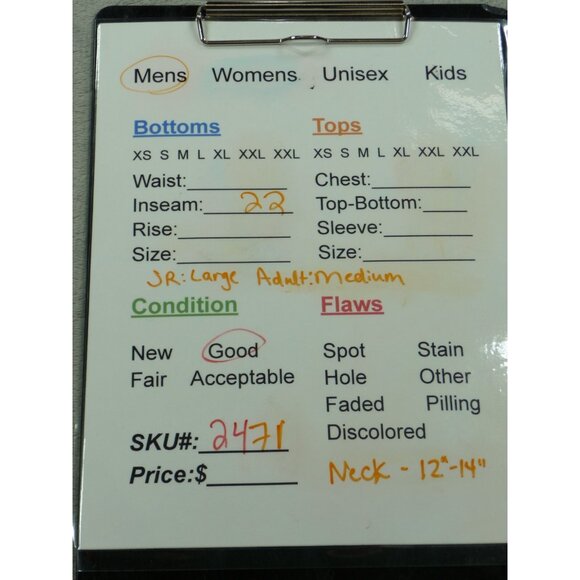 Mens Womens Unisex Kids
Bottoms Tops
XS S M L XL XXL XXL XS S M L XL XXL XXL
Waist:__________ Chest:__________
Inseam: 22 Top-Bottom:_____
Rise:___________ Sleeve:_________
Size:___________ Size:___________
JR: Large Adult: Medium
Condition Flaws
New Good Spot Stain
Fair Acceptable Hole Other
Faded Pilling
SKU#: 2471 Discolored
Price:$________ Neck - 12"-14"